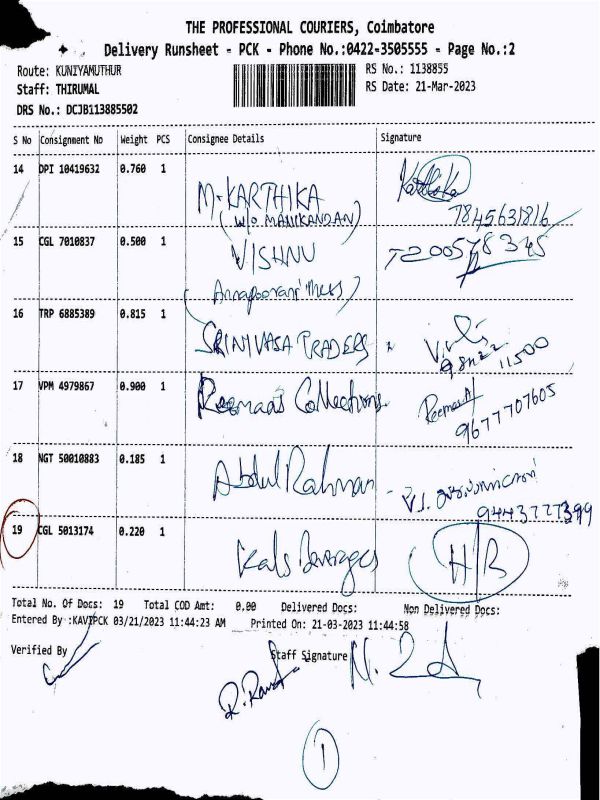 THE PROFESSIONAL COURIERS, Coimbatore
Delivery Runsheet - PCK - Phone No.:0422-3505555 - Page No.:2
Route: KUNIYAMUTHUR
RS No.: 1138855
Staff: THIRUMAL
RS Date: 21-Mar-2023
DRS No.: DCJB113885502
S No Consignment No Weight PCS Consignee Details Signature
14 DPI 10419632 0.760 1
M.KARTHIKA
(W/O MANIKANDAN)
Karthika
7845631816
15 CGL 7010837 0.500 1
VISHNU
7200578345
16 TRP 6885389 0.815 1
SRINIVASA TRADERS
11500
17 VPM 4979867 0.900 1
Reemaas Collections
9677707605
18 NGT 50010883 0.185 1
Abdul Rahman
19 CGL 5013174 0.220 1
Kals Beverages
H/B
Total No. Of Docs: 19 Total COD Amt: 0.00 Delivered Docs: Non Delivered Docs:
Entered By :KAVIPCK 03/21/2023 11:44:23 AM Printed On: 21-03-2023 11:44:58
Verified By
Staff Signature
1